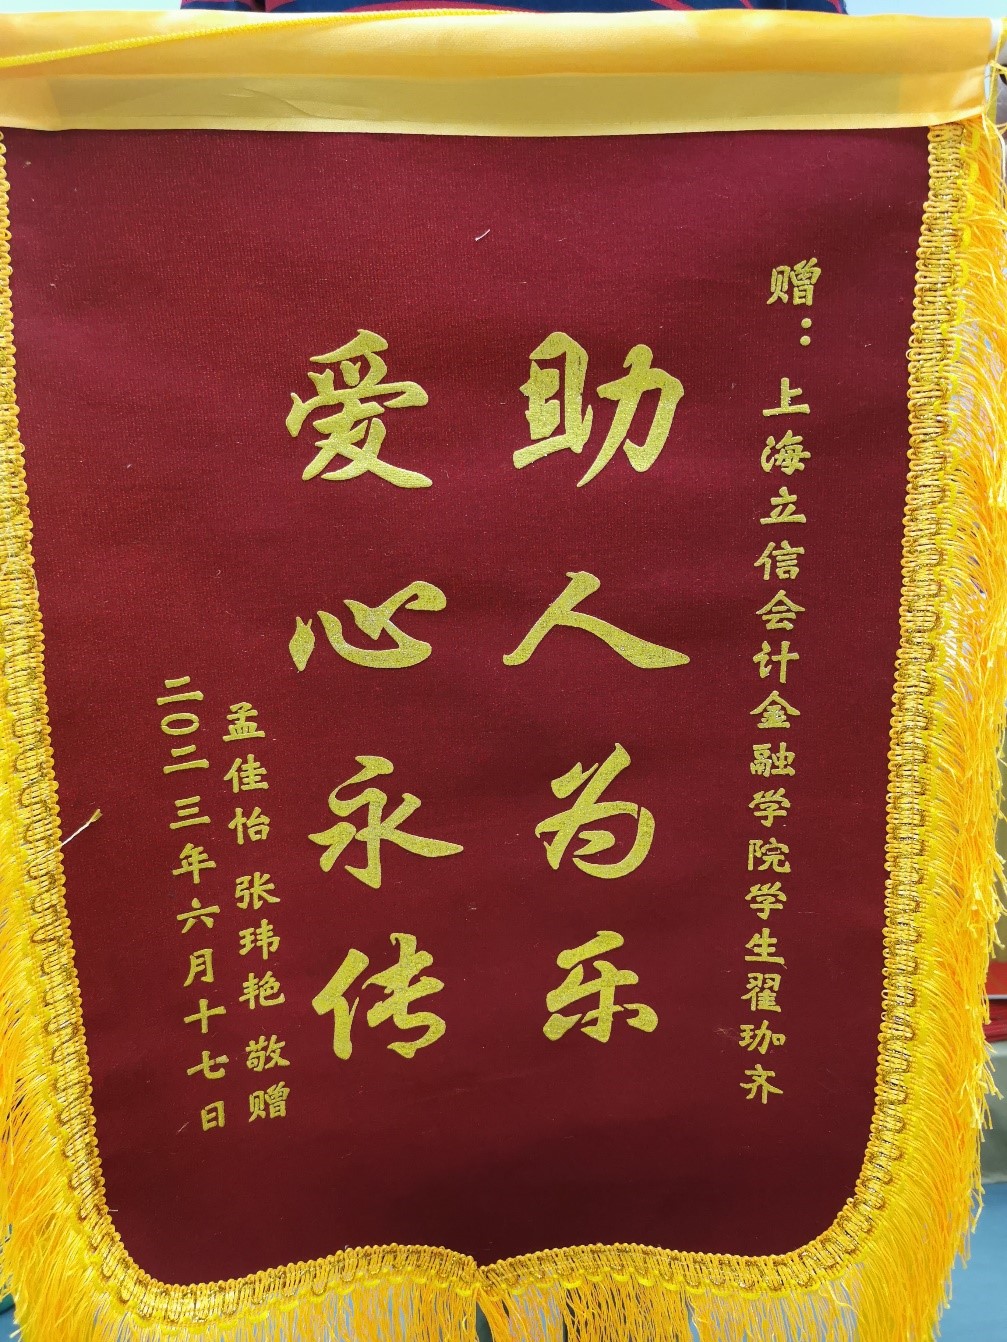 赠：上海立信会计金融学院学生翟珈齐
助人为乐
爱心永传
孟佳怡 张玮艳 敬赠
二〇二三年六月十七日